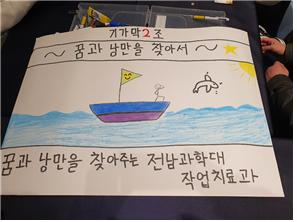 기가막2조
~ 꿈과 낭만을 찾아서 ~
꿈과 낭만을 찾아주는 전남과학대
작업치료과